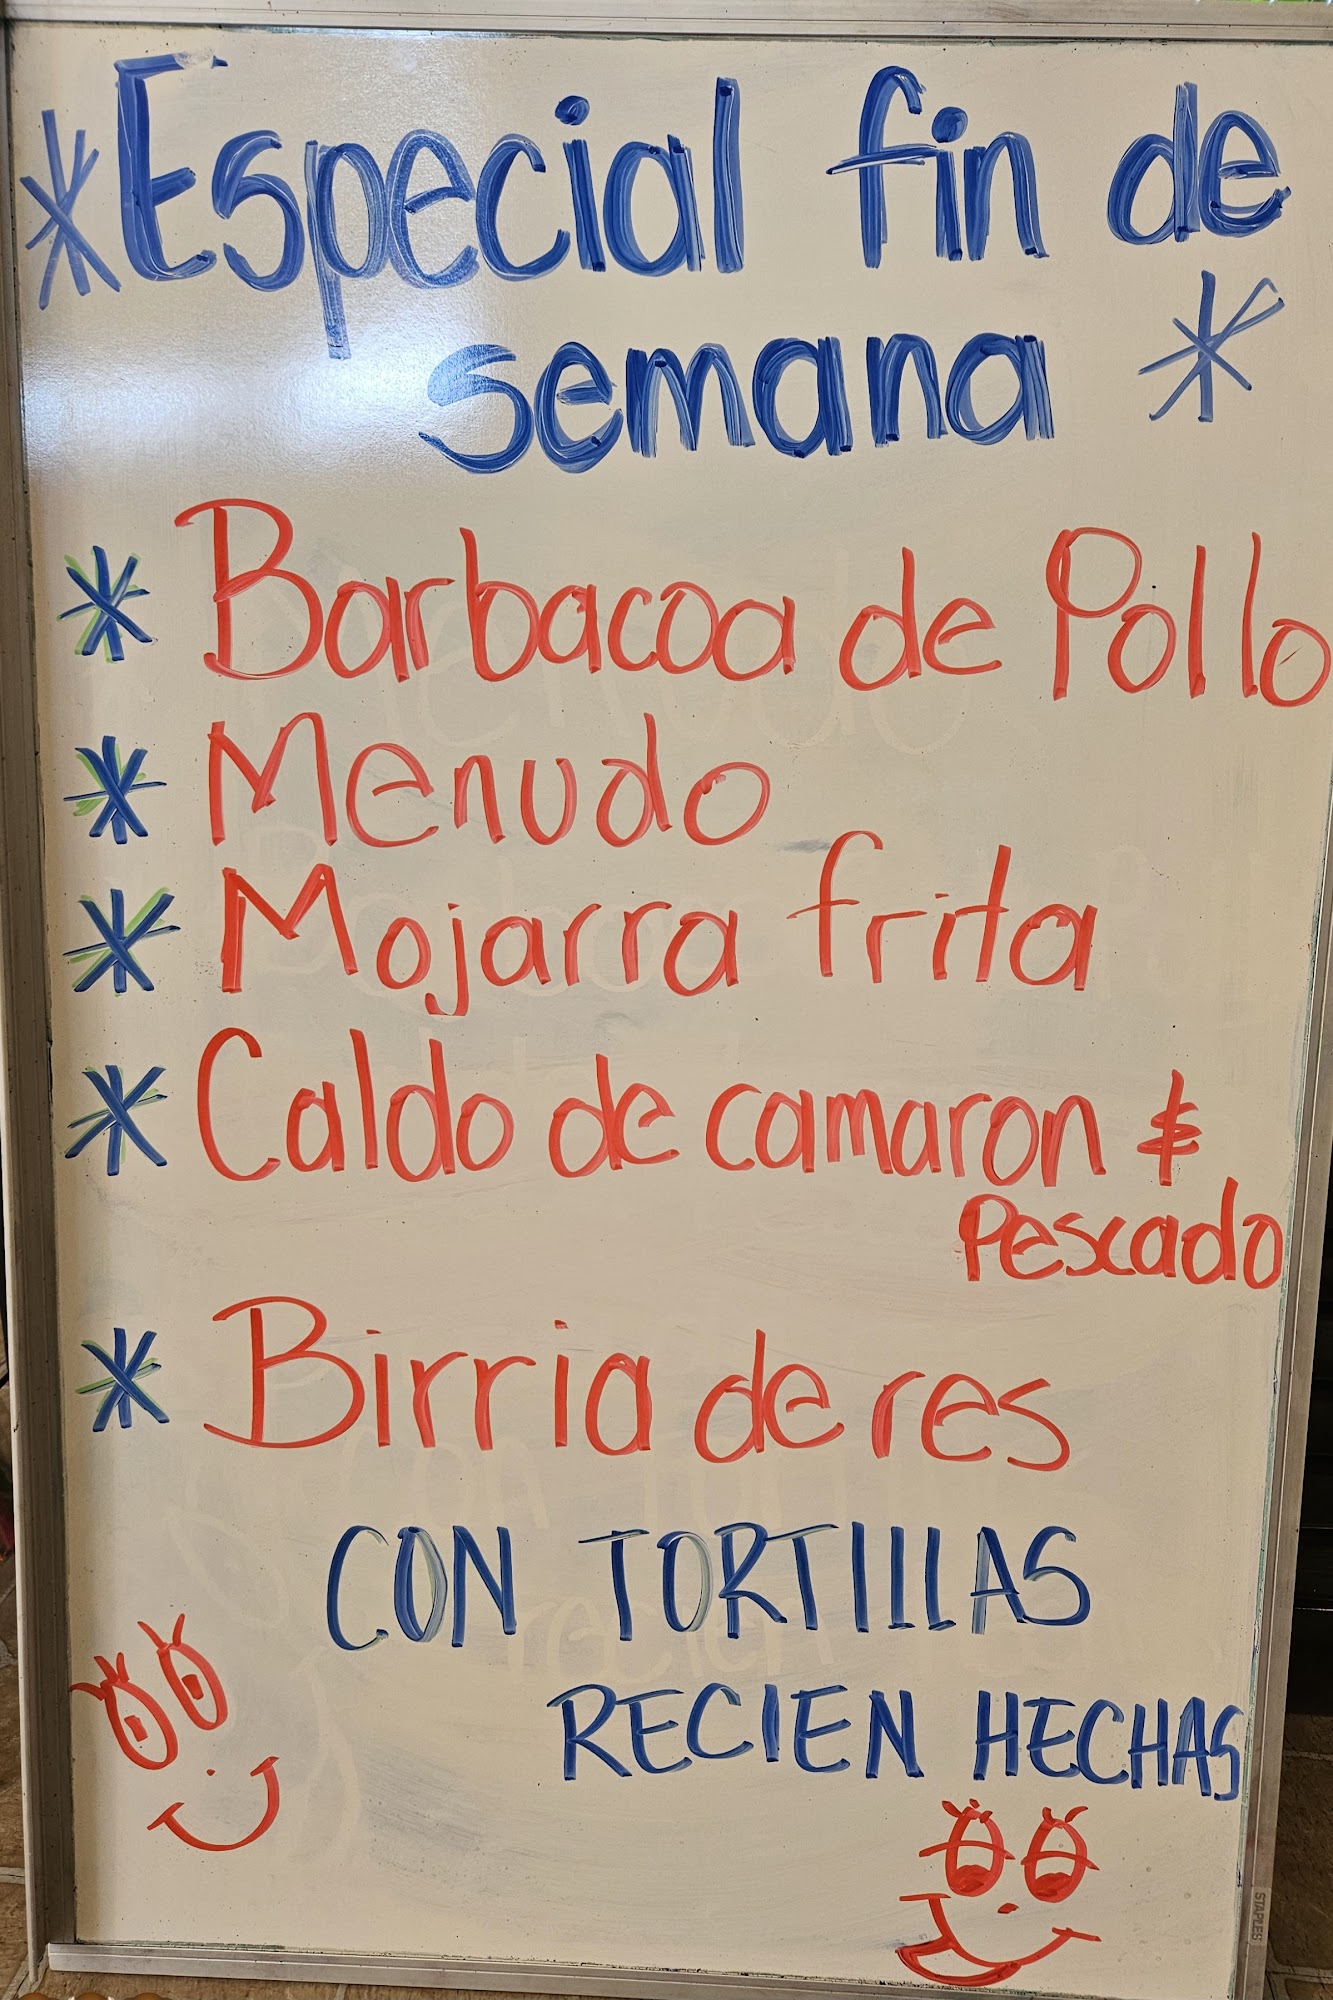 *Especial fin de
semana *
* Barbacoa de Pollo
* Menudo
* Mojarra frita
* Caldo de camaron &
Pescado
* Birria de res
CON TORTILLAS
RECIEN HECHAS
STAPLES